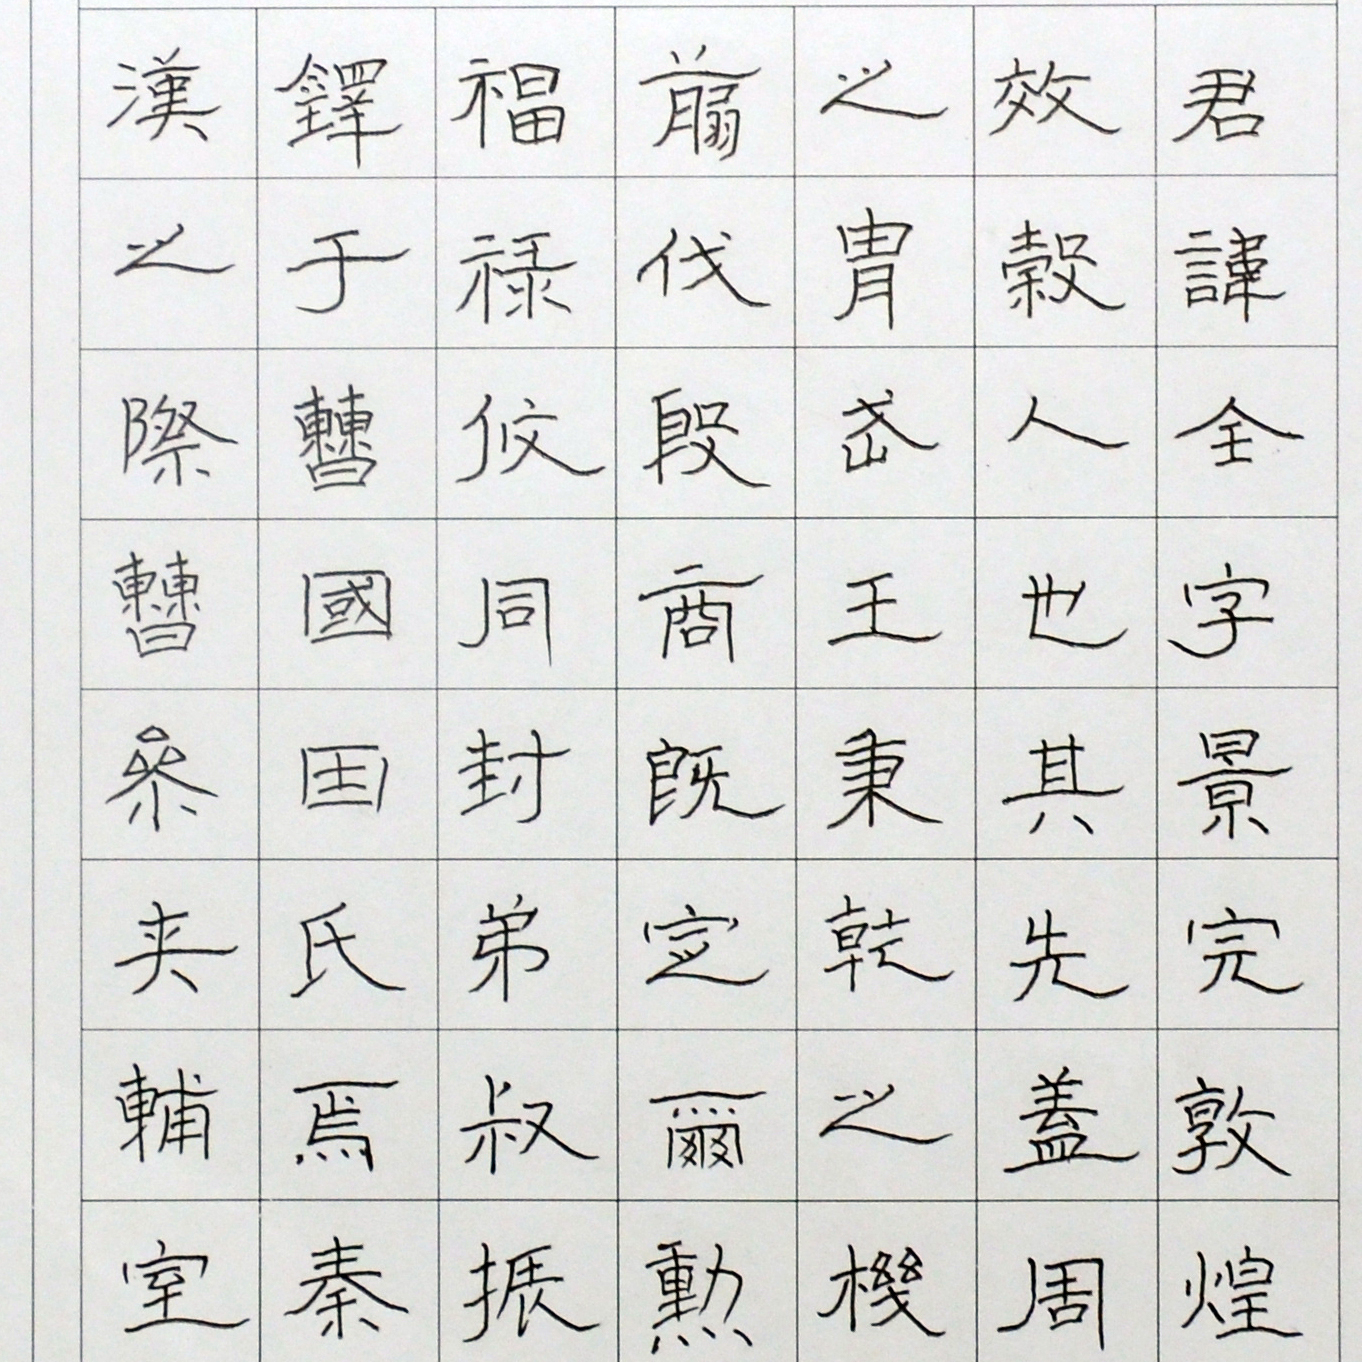 君諱全字景完敦煌
效穀人也其先蓋周
之胄武王秉乾之機
翦伐殷商既定爾勳
福祿攸同封弟叔振
鐸于曹國因氏焉秦
漢之際曹參夾輔室